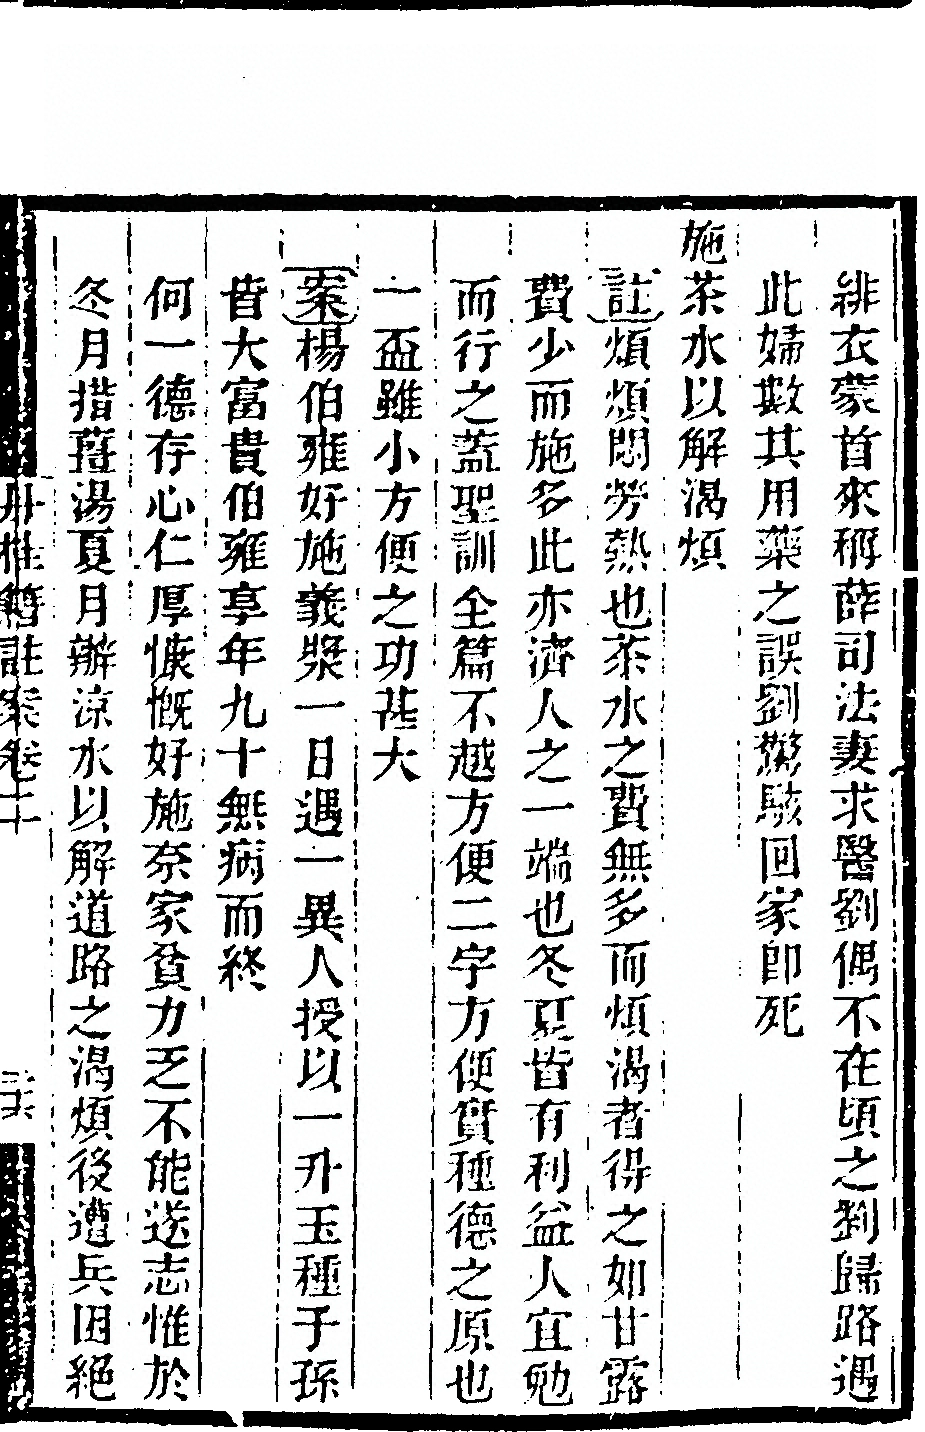 緋衣蒙首來稱薛司法妻求醫劉偶不在頃之劉歸路遇
此婦數其用藥之誤劉驚駭回家即死
施茶水以解渴煩
註煩煩悶勞熱也茶水之費無多而煩渴者得之如甘露
費少而施多此亦濟人之一端也冬夏皆有利益人宜勉
而行之蓋聖訓全篇不越方便二字方便實種德之原也
一盃雖小方便之功甚大
案楊伯雍好施義漿一日遇一異人授以一升玉種子孫
皆大富貴伯雍享年九十無病而終
何一德存心仁厚慷慨好施奈家貧力乏不能遂志惟於
冬月措薑湯夏月辦涼水以解道路之渴煩後遭兵困絕
丹桂籍註案卷二